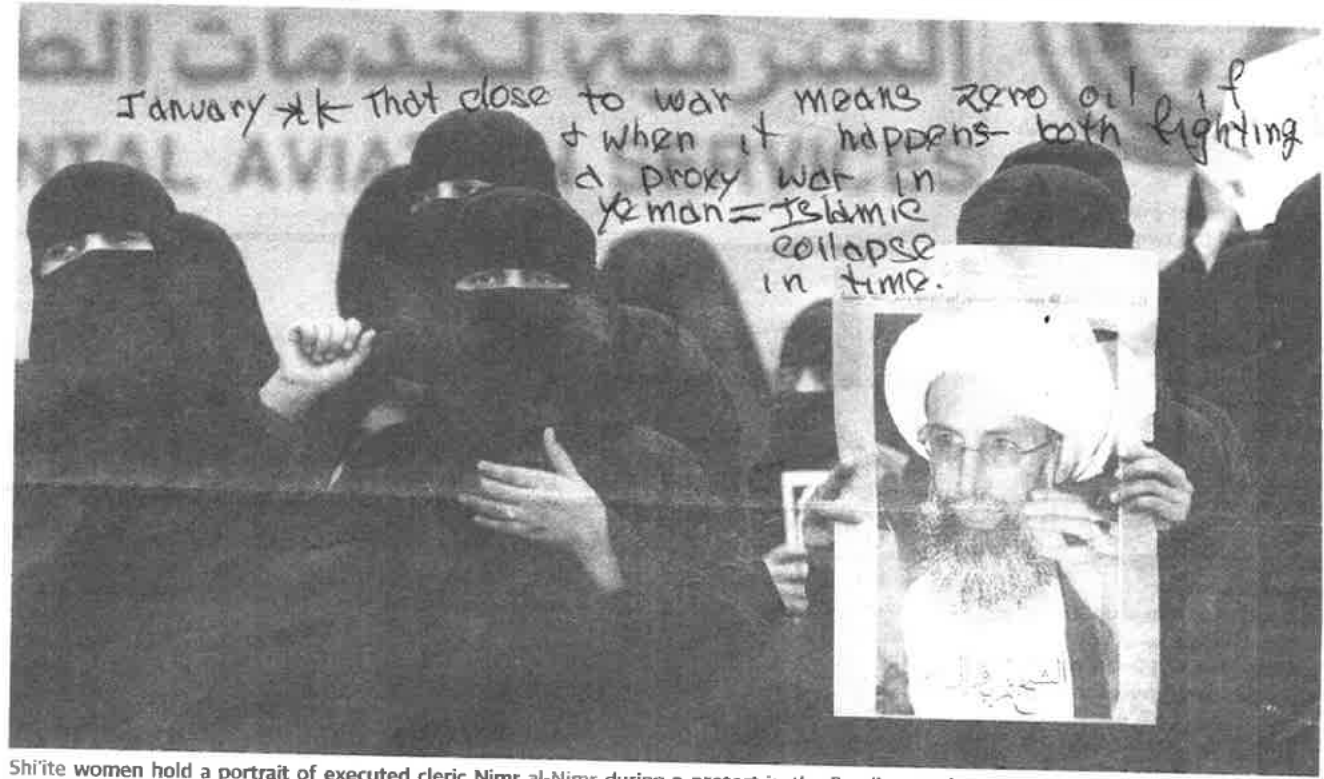 الشرقية لخدمات الط
NTAL AVIA
January ⁎ ← That close to war, means zero oil if
& when it happens- both fighting
a proxy war in
Yeman = Islamic
collapse
in time.
الشيخ
Shi'ite women hold a portrait of executed cleric Nimr al-Nimr during a protest in the